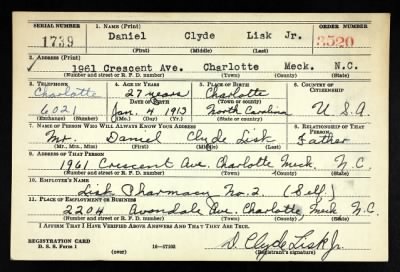 SERIAL NUMBER 1. NAME (Print) ORDER NUMBER
1739 Daniel Clyde Lisk Jr. 3520
(First) (Middle) (Last)
2. ADDRESS (Print)
1961 Crescent Ave. Charlotte Meck. N.C.
(Number and street or R. F. D. number) (Town) (County) (State)
3. TELEPHONE 4. AGE IN YEARS 5. PLACE OF BIRTH 6. COUNTRY OF CITIZENSHIP
Charlotte 27 years Charlotte
DATE OF BIRTH (Town or county)
6021 Jan. 4 1913 North Carolina U S A
(Exchange) (Number) (Mo.) (Day) (Yr.) (State or country)
7. NAME OF PERSON WHO WILL ALWAYS KNOW YOUR ADDRESS 8. RELATIONSHIP OF THAT PERSON
Mr. Daniel Clyde Lisk Father
(Mr., Mrs., Miss) (First) (Middle) (Last)
9. ADDRESS OF THAT PERSON
1961 Crescent Ave. Charlotte Meck. N.C.
(Number and street or R. F. D. number) (Town) (County) (State)
10. EMPLOYER'S NAME
Lisk Pharmacy No. 2. (Self)
11. PLACE OF EMPLOYMENT OR BUSINESS
2204 Avondale Ave. Charlotte, Meck N.C.
(Number and street or R. F. D. number) (Town) (County) (State)
I AFFIRM THAT I HAVE VERIFIED ABOVE ANSWERS AND THAT THEY ARE TRUE.
REGISTRATION CARD
D. S. S. Form 1 (over) 16—17105 D. Clyde Lisk Jr.
(Registrant's signature)